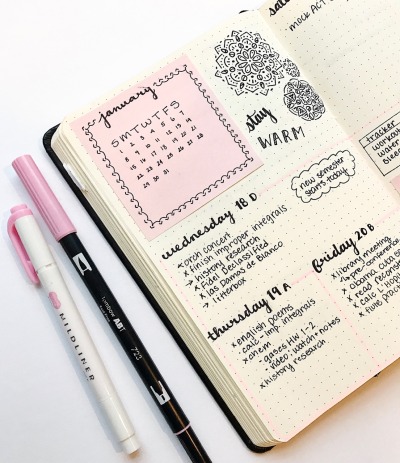 january
S M T W T F S
1 2 3 4 5 6 7
8 9 10 11 12 13 14
15 16 17 18 19 20 21
22 23 24 25 26 27 28
29 30 31
stay
WARM
new semester
starts today
wednesday 18 D
x orch concert
x finish improper integrals
→ history research
x Fidel Declassified
x las Damas de Blanco
→ litterbox
thursday 19 A
x english poems
x calc - imp. integrals
x chem
· gases HW 1-2
· video: watch + notes
x history research
friday 20 B
x library meeting
x obama cuba
x read
x calc L'Hop
x flute
sat
mock ACT
tracker
workout
water
sleep
MILDLINER
tombow ABT
723